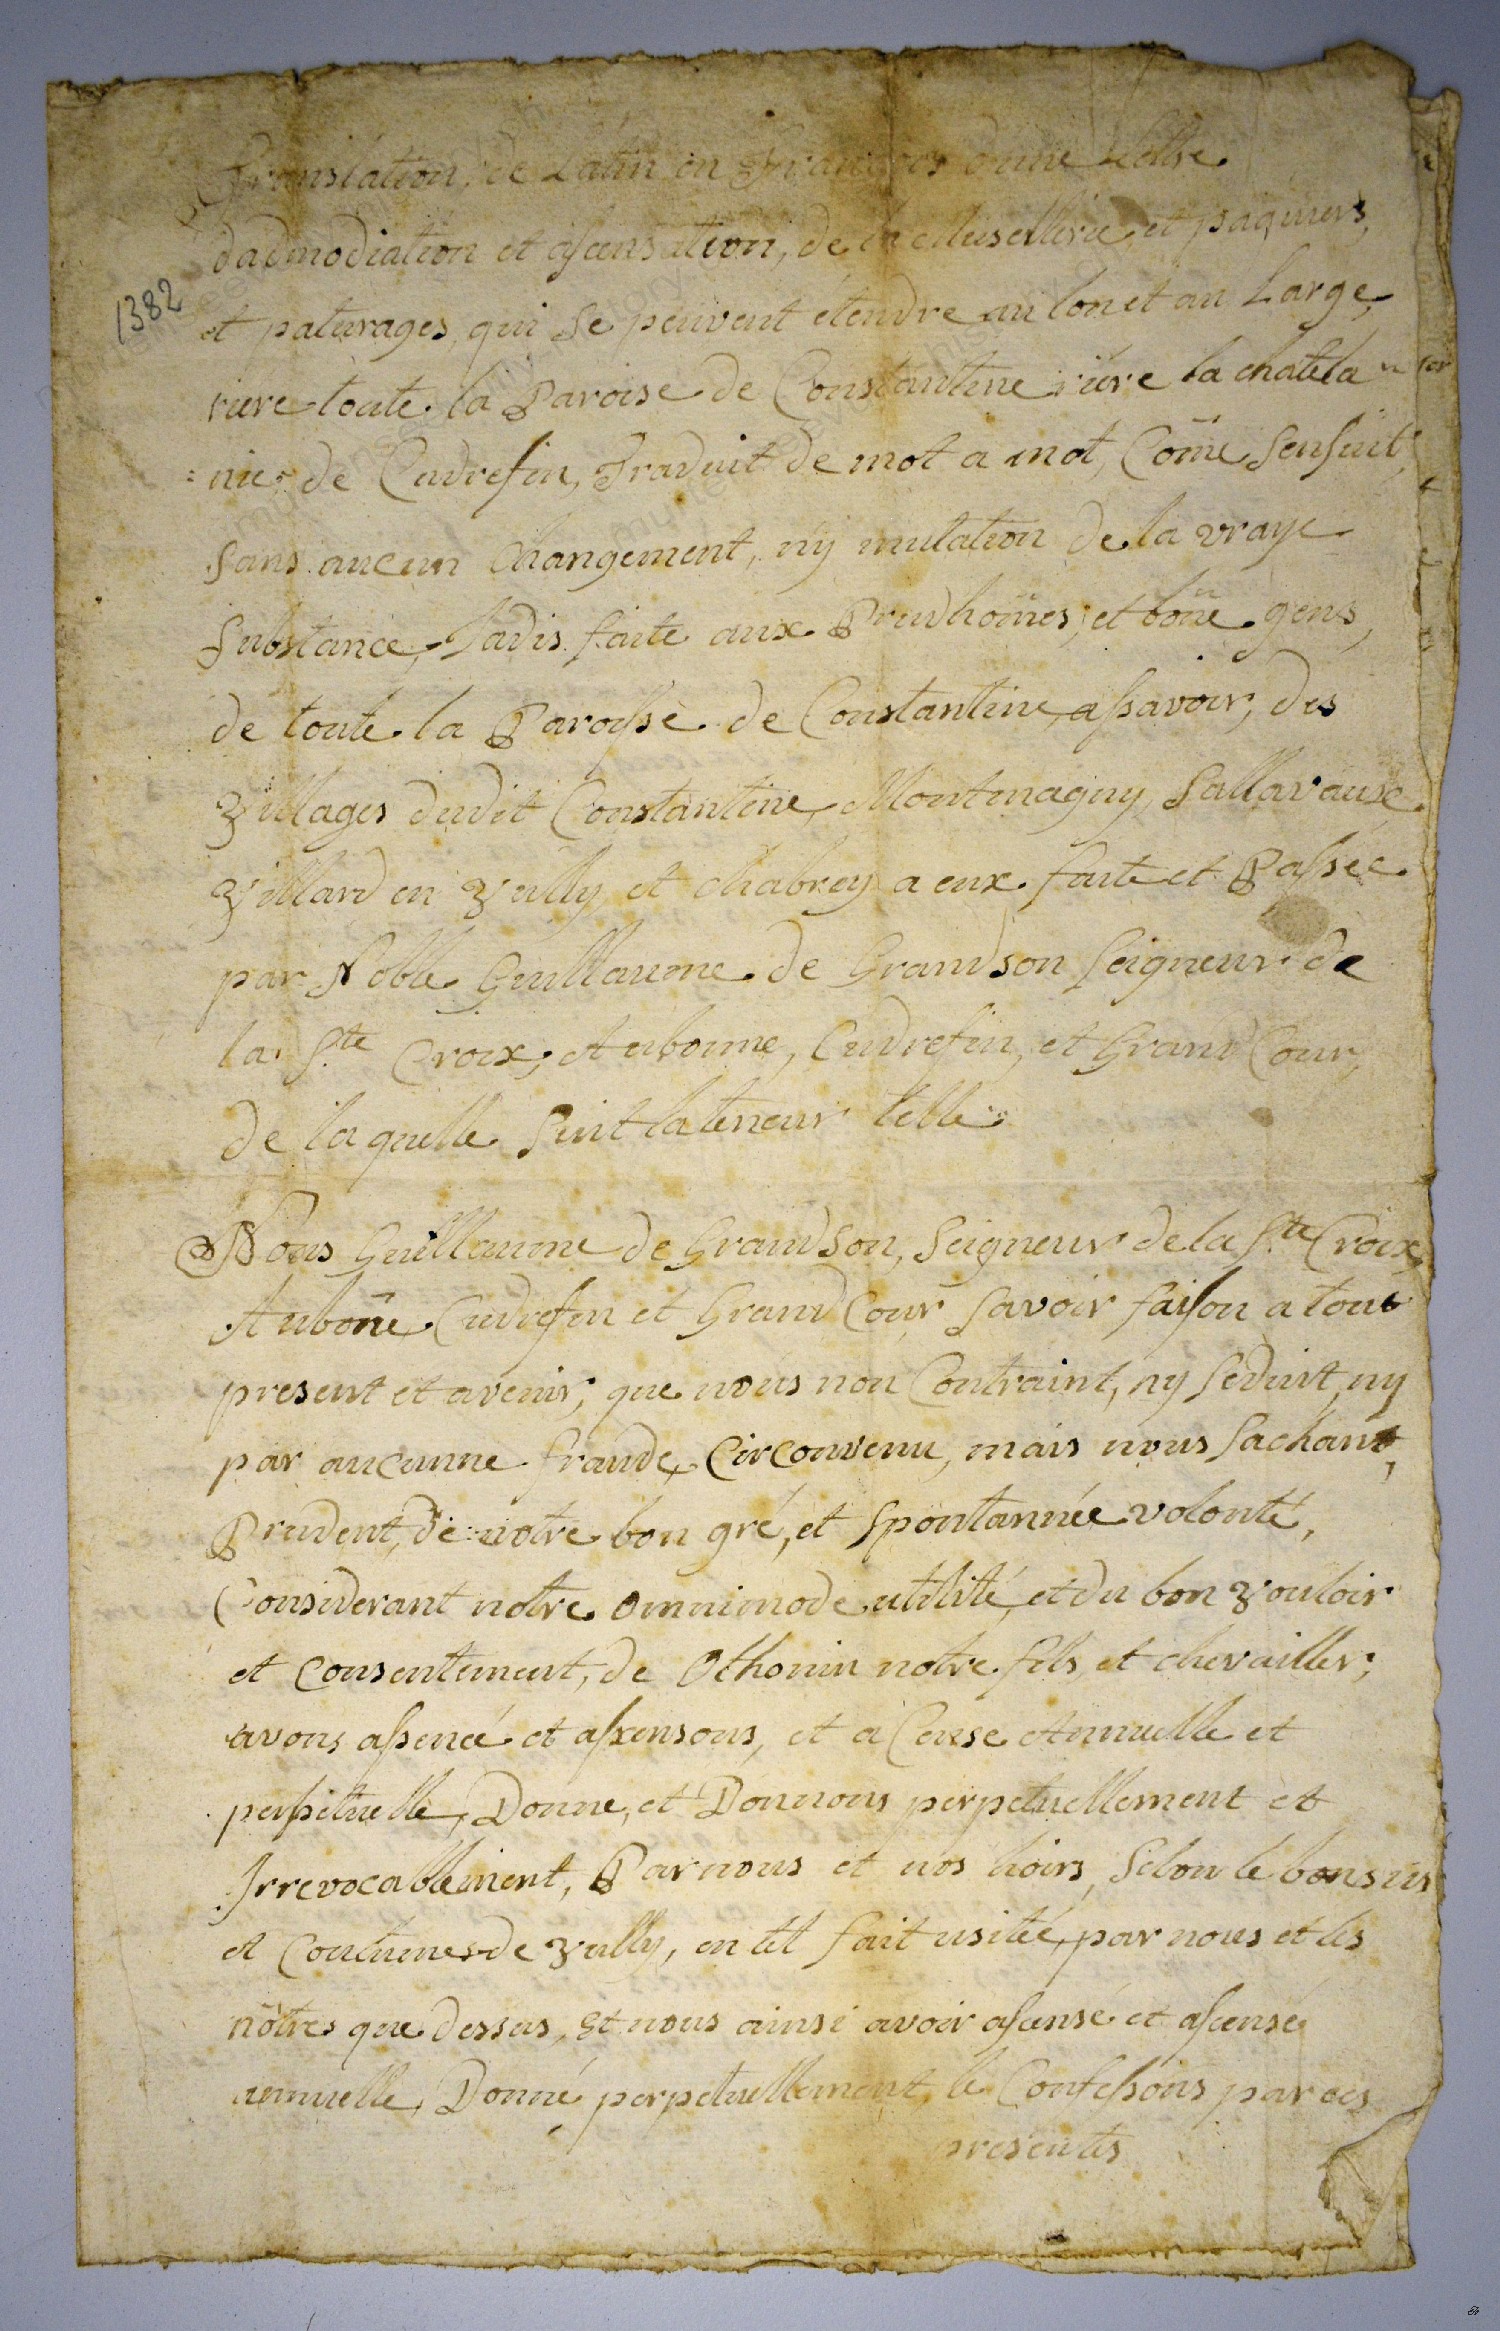 Translation de Latin en François d'une Lettre
dadmodiation et assensation, de la Messellerie et paquiers,
1382
et paturages, qui se peuvent étendre au lon et au Large,
riere toute la Paroise de Constantine riére la chatela
=nie de Cudrefin, Traduit de mot a mot, Come Sensuit,
Sans aucun Changement, ny mutation de la vraye
Substance, Jadis faite aux Prudhomes, et bone gens,
de toute la Paroisse de Constantine, assavoir, des
Villages dudit Constantine, Montmagny, Sallavaux
Villard en Vully et chabrey a eux faite et Passée
par Noble Guillaume de Grandson Seigneur de
la Ste Croix, Aubonne, Cudrefin, et Grand Cour,
de laquelle Suit la teneur telle
Nous Guillaume de Grandson, Seigneur de la Ste Croix,
Aubone Cudrefin et Grand Cour Savoir faison a tout
present et avenir, que nous non Contraint, ny Seduit, ny
par aucunne fraude, Circonvenu, mais nous Sachant,
Prudent, de notre bon gré, et Spontannée volonté,
Considerant notre omnimode utilité, et du bon Vouloir
et Consentement, de Othonin notre fils, et chevailler;
avons assencé et assensons, et a Cense Annuelle et
perpetuelle, Donne, et Donnons perpetuellement et
Irrevocablement, Par nous et nos hoirs, Selon le bons us
et Coutumes de Vully, en tel fait usitée, par nous et les
nôtres que dessus, Et nous ainsi avoir assensé et assensé
annuelle, Donné perpetuellement, le Confessons par ces
presentes